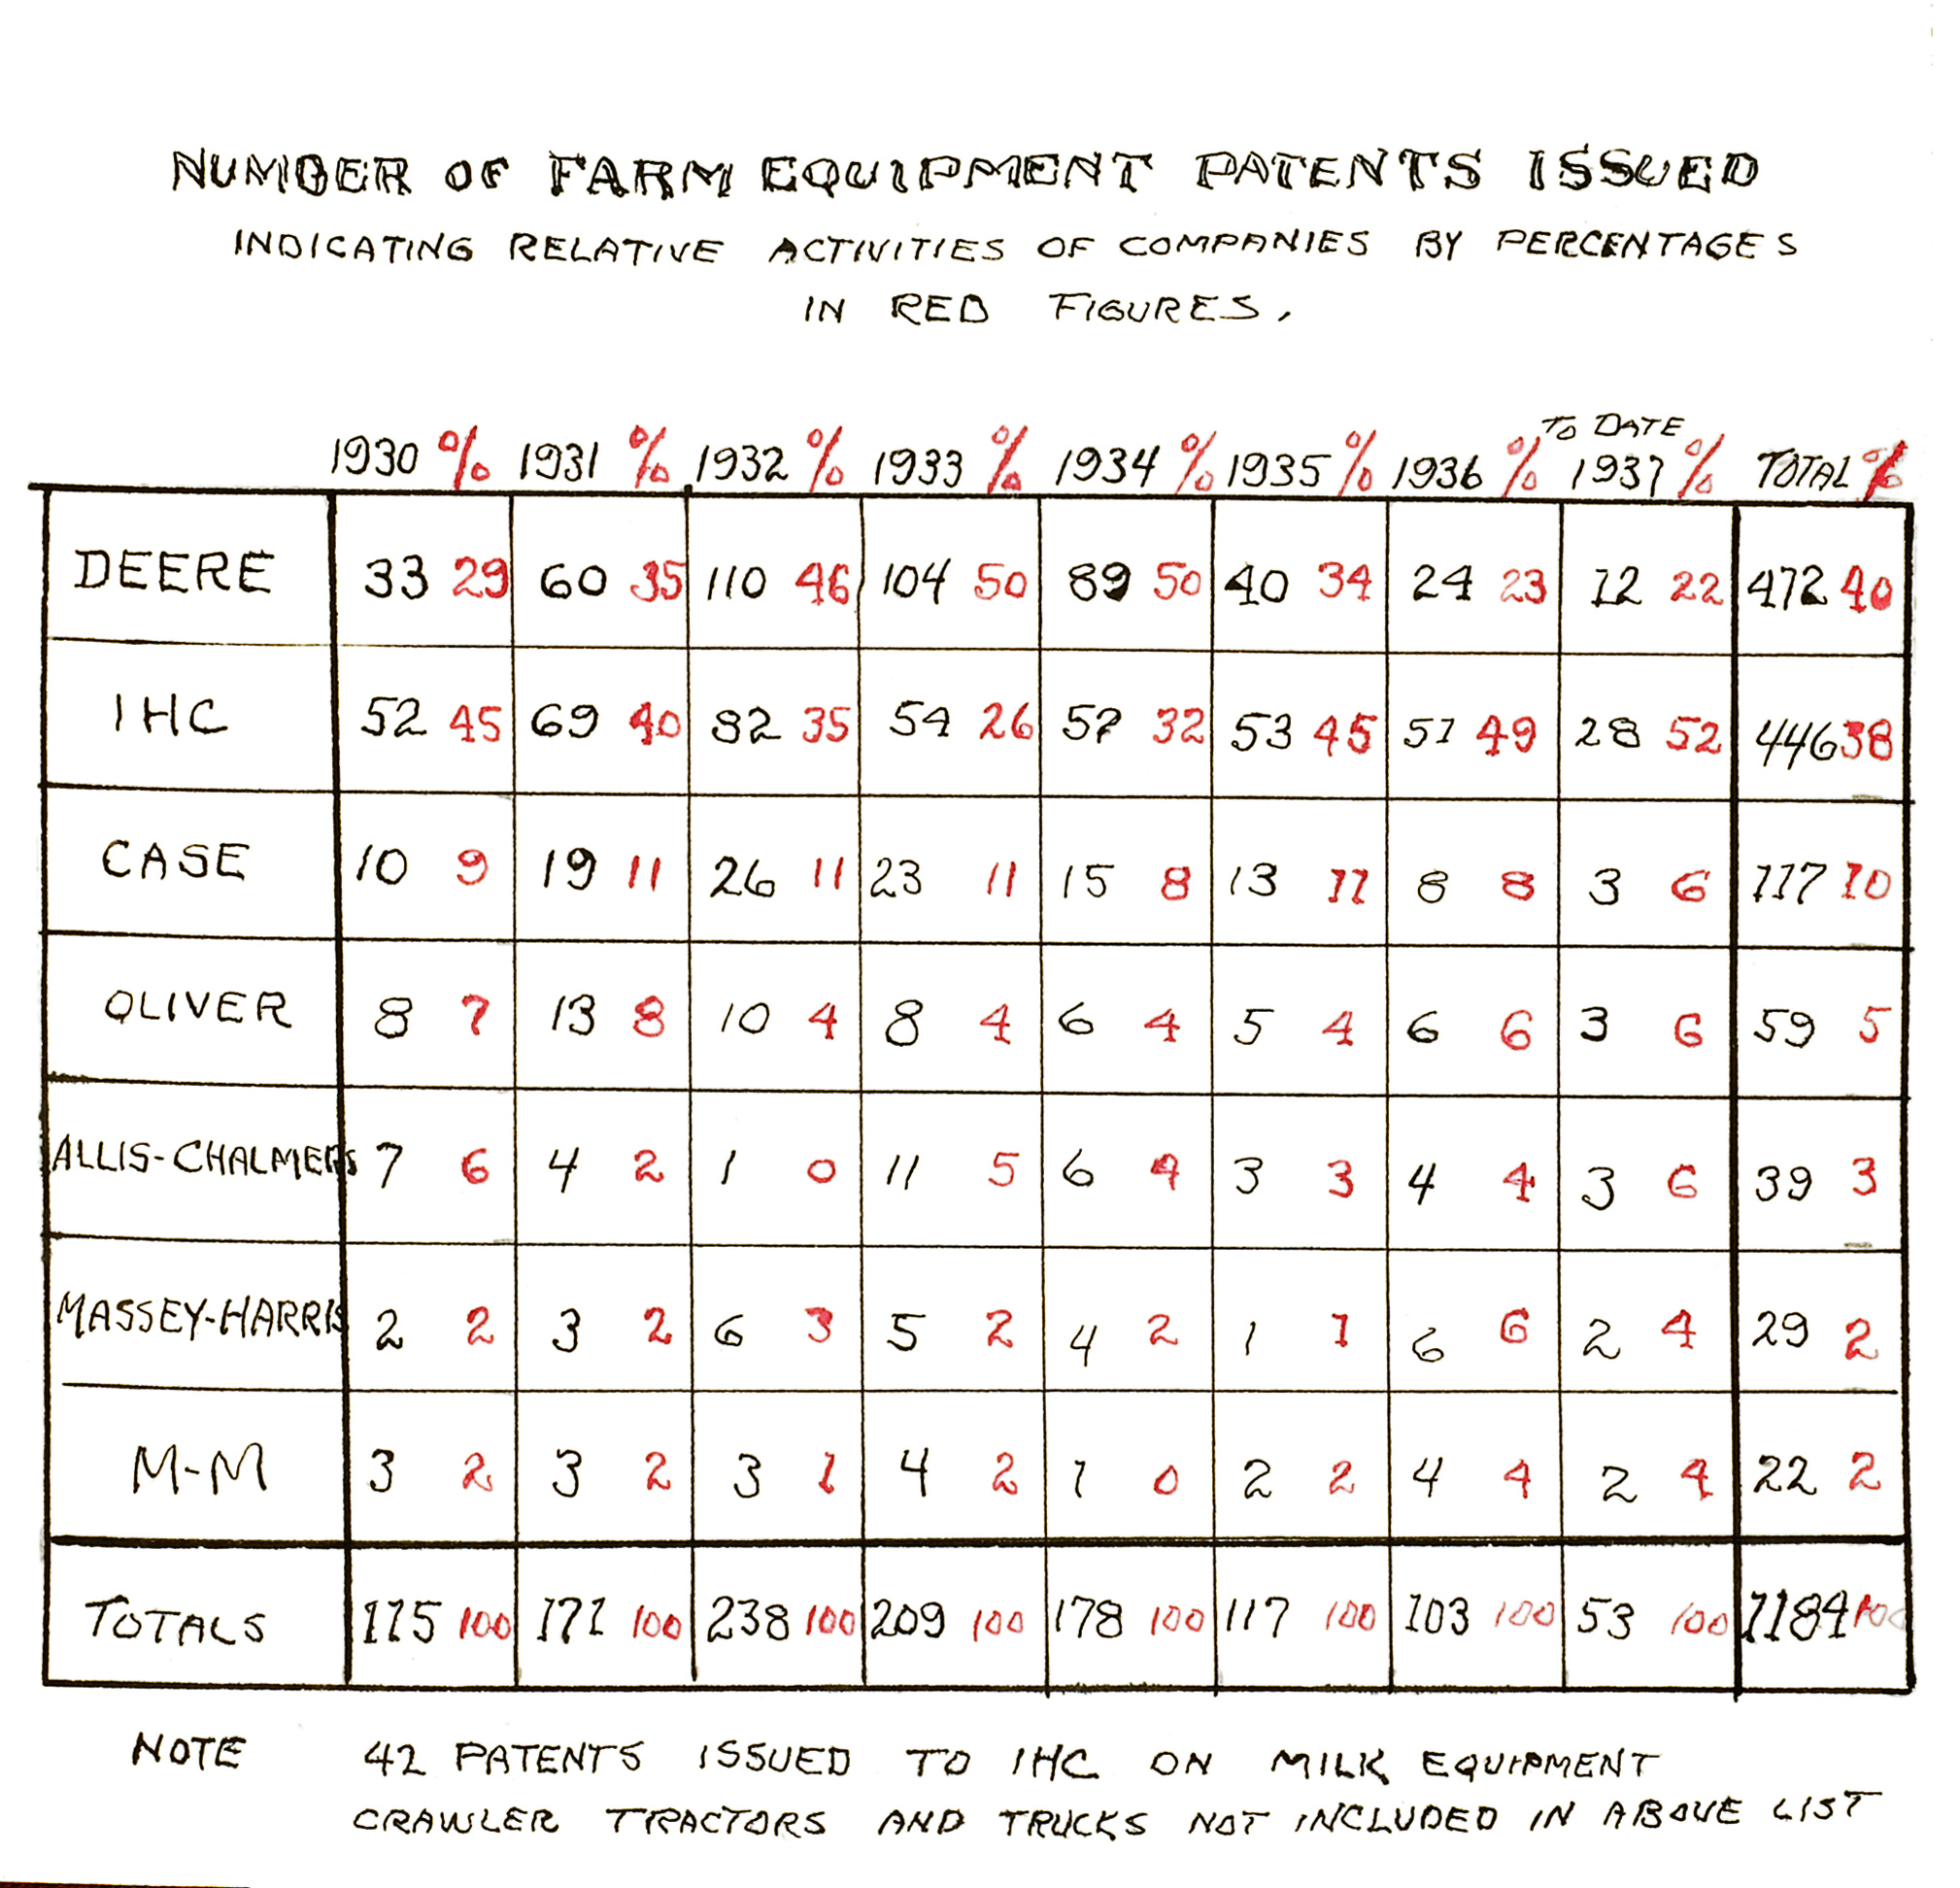 NUMBER OF FARM EQUIPMENT PATENTS ISSUED
INDICATING RELATIVE ACTIVITIES OF COMPANIES BY PERCENTAGES
IN RED FIGURES.
TO DATE
1930 % 1931 % 1932 % 1933 % 1934 % 1935 % 1936 % 1937 % TOTAL %
DEERE 33 29 60 35 110 46 104 50 89 50 40 34 24 23 12 22 472 40
IHC 52 45 69 40 82 35 54 26 57 32 53 45 51 49 28 52 446 38
CASE 10 9 19 11 26 11 23 11 15 8 13 11 8 8 3 6 117 10
OLIVER 8 7 13 8 10 4 8 4 6 4 5 4 6 6 3 6 59 5
ALLIS-CHALMERS 7 6 4 2 1 0 11 5 6 4 3 3 4 4 3 6 39 3
MASSEY-HARRIS 2 2 3 2 6 3 5 2 4 2 1 1 6 6 2 4 29 2
M-M 3 2 3 2 3 1 4 2 1 0 2 2 4 4 2 4 22 2
TOTALS 115 100 171 100 238 100 209 100 178 100 117 100 103 100 53 100 1184 100
NOTE 42 PATENTS ISSUED TO IHC ON MILK EQUIPMENT
CRAWLER TRACTORS AND TRUCKS NOT INCLUDED IN ABOVE LIST